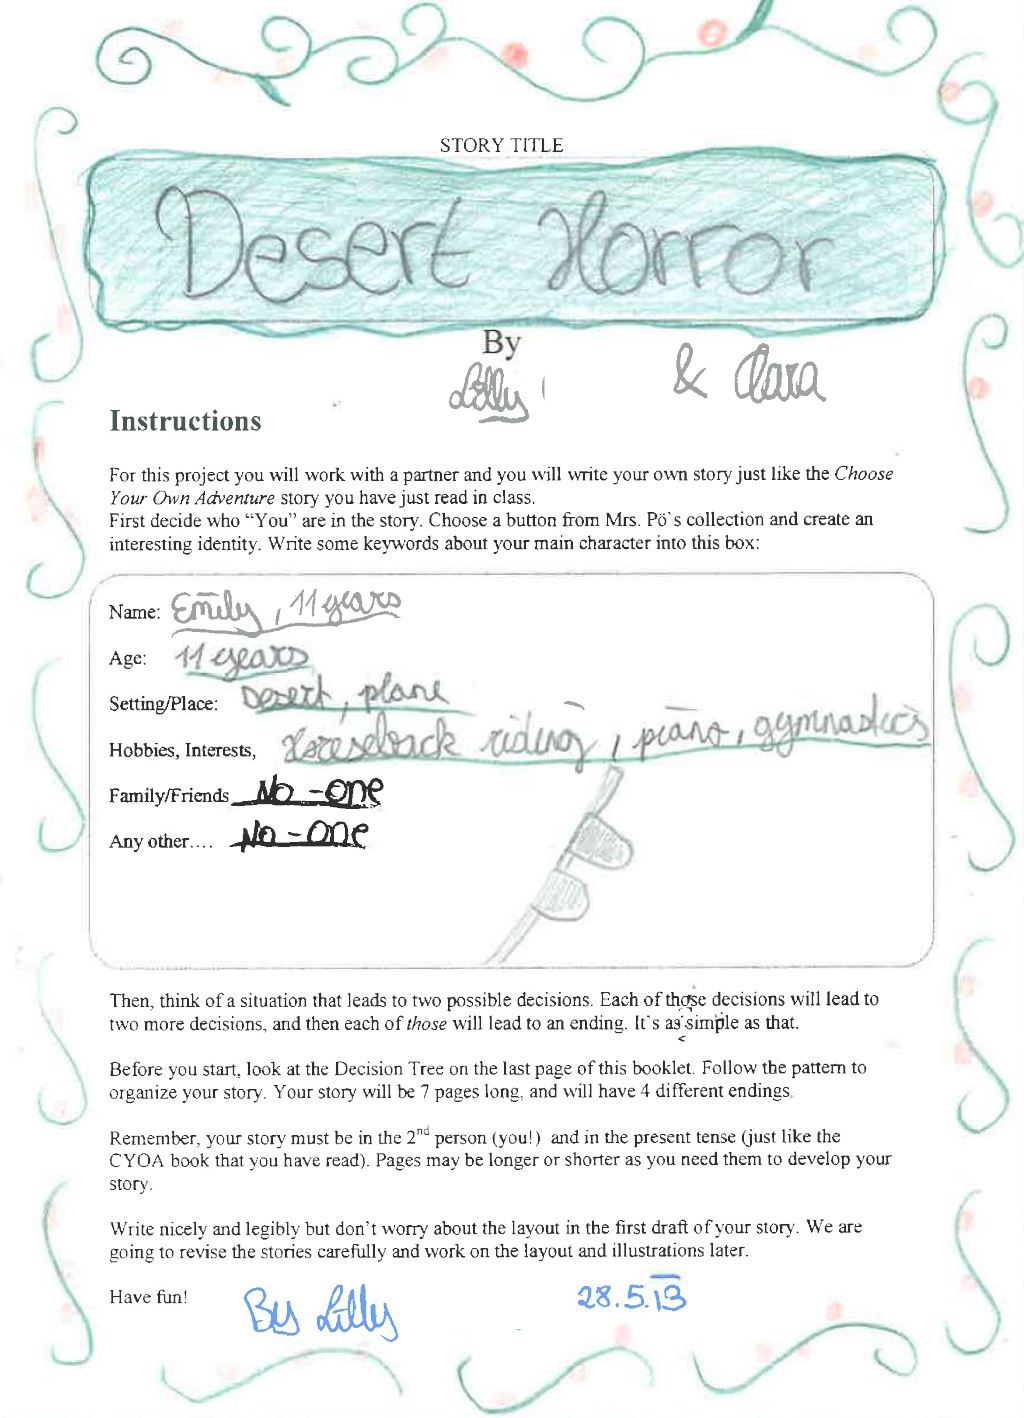 STORY TITLE
Desert Horror
By
Lilly & Clara
Instructions
For this project you will work with a partner and you will write your own story just like the Choose
Your Own Adventure story you have just read in class.
First decide who “You” are in the story. Choose a button from Mrs. Pö`s collection and create an
interesting identity. Write some keywords about your main character into this box:
Name: Emily, 11 years
Age: 11 years
Setting/Place: Desert, plane
Hobbies, Interests, Horseback riding, piano, gymnastics
Family/Friends No-one
Any other.... No-one
Then, think of a situation that leads to two possible decisions. Each of those decisions will lead to
two more decisions, and then each of those will lead to an ending. It`s as simple as that.
Before you start, look at the Decision Tree on the last page of this booklet. Follow the pattern to
organize your story. Your story will be 7 pages long, and will have 4 different endings.
Remember, your story must be in the 2nd person (you!) and in the present tense (just like the
CYOA book that you have read). Pages may be longer or shorter as you need them to develop your
story.
Write nicely and legibly but don’t worry about the layout in the first draft of your story. We are
going to revise the stories carefully and work on the layout and illustrations later.
Have fun! By Lilly 28.5.13